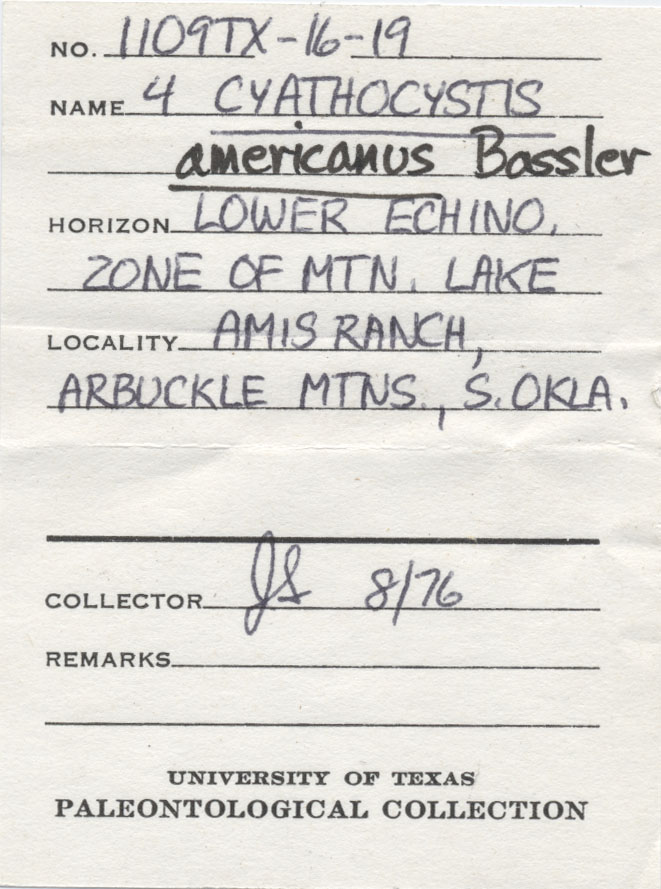 NO. 1109TX-16-19
NAME 4 CYATHOCYSTIS
americanus Bassler
HORIZON LOWER ECHINO.
ZONE OF MTN. LAKE
LOCALITY AMIS RANCH,
ARBUCKLE MTNS., S. OKLA.
COLLECTOR JS 8/76
REMARKS
UNIVERSITY OF TEXAS
PALEONTOLOGICAL COLLECTION